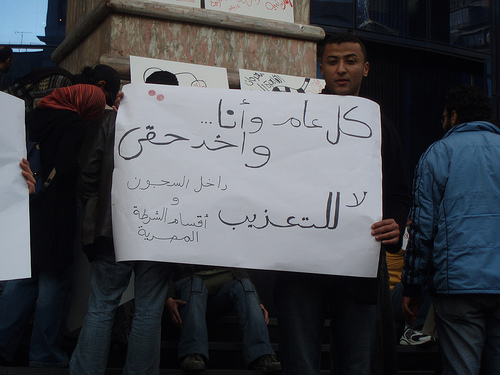 كل عام وأنا...
واخد حقى
لا للتعذيب
داخل السجون
و
أقسام الشرطة
المصرية